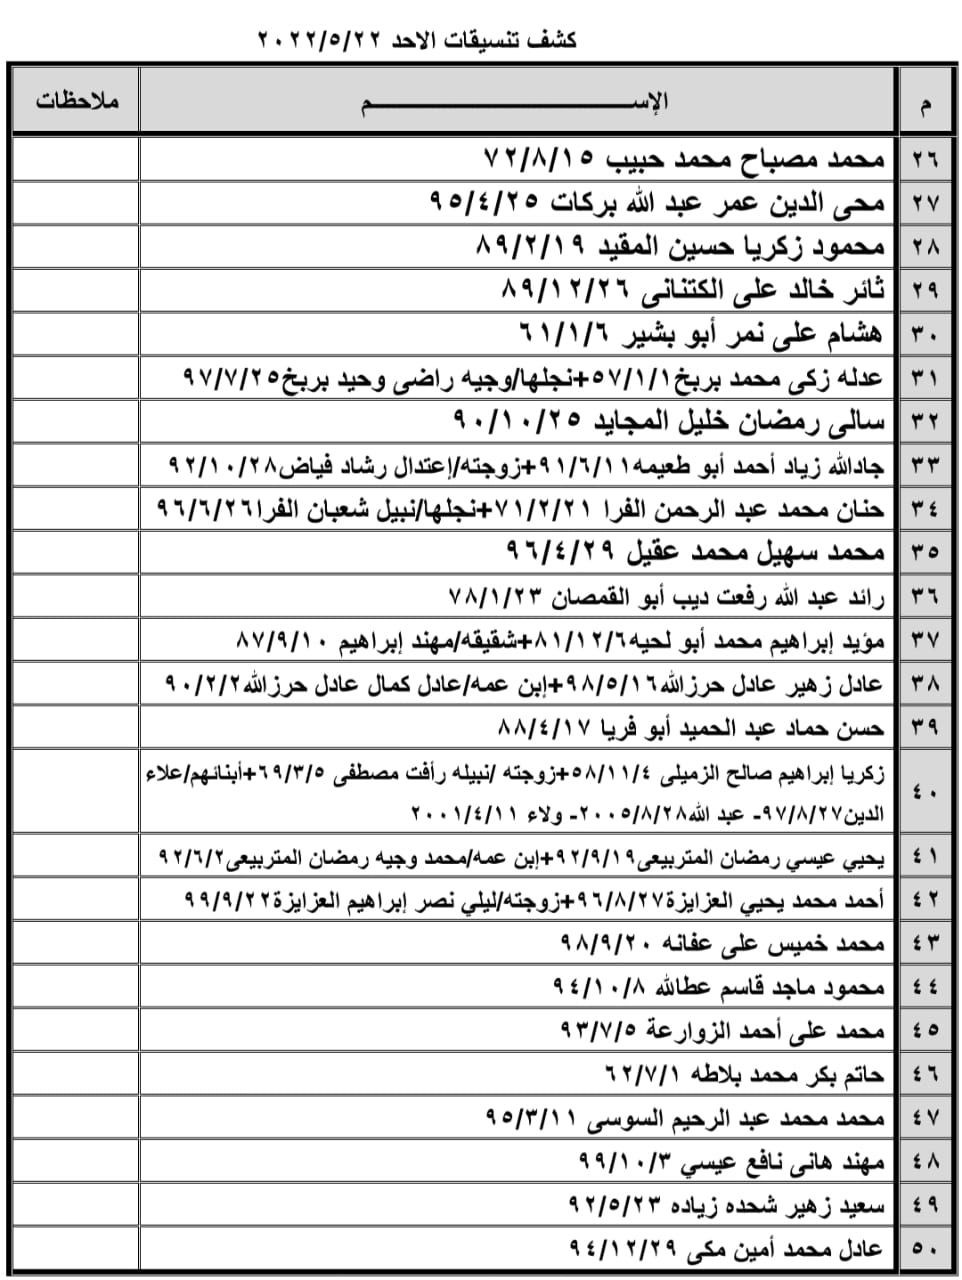 كشف تنسيقات الاحد ٢٠٢٢/٥/٢٢
م الإســـــــــــــم ملاحظات
٢٦ محمد مصباح محمد حبيب ٧٢/٨/١٥
٢٧ محى الدين عمر عبد الله بركات ٩٥/٤/٢٥
٢٨ محمود زكريا حسين المقيد ٨٩/٢/١٩
٢٩ ثائر خالد على الكتنانى ٨٩/١٢/٢٦
٣٠ هشام على نمر أبو بشير ٦١/١/٦
٣١ عدله زكى محمد بربخ٥٧/١/١+نجلها/وجيه راضى وحيد بربخ٩٧/٧/٢٥
٣٢ سالى رمضان خليل المجايد ٩٠/١٠/٢٥
٣٣ جادالله زياد أحمد أبو طعيمه٩١/٦/١١+زوجته/إعتدال رشاد فياض٩٢/١٠/٢٨
٣٤ حنان محمد عبد الرحمن الفرا ٧١/٢/٢١+نجلها/نبيل شعبان الفرا٩٦/٦/٢٦
٣٥ محمد سهيل محمد عقيل ٩٦/٤/٢٩
٣٦ رائد عبد الله رفعت ديب أبو القمصان ٧٨/١/٢٣
٣٧ مؤيد إبراهيم محمد أبو لحيه٨١/١٢/٦+شقيقه/مهند إبراهيم ٨٧/٩/١٠
٣٨ عادل زهير عادل حرزالله٩٨/٥/١٦+إبن عمه/عادل كمال عادل حرزالله٩٠/٢/٢
٣٩ حسن حماد عبد الحميد أبو فريا ٨٨/٤/١٧
٤٠ زكريا إبراهيم صالح الزميلى ٥٨/١١/٤+زوجته /نبيله رأفت مصطفى ٦٩/٣/٥+أبنائهم/علاء
الدين٩٧/٨/٢٧- عبد الله٢٠٠٥/٨/٢٨- ولاء ٢٠٠١/٤/١١
٤١ يحيي عيسي رمضان المتربيعى٩٢/٩/١٩+إبن عمه/محمد وجيه رمضان المتربيعى٩٢/٦/٢
٤٢ أحمد محمد يحيي العزايزة٩٦/٨/٢٧+زوجته/ليلي نصر إبراهيم العزايزة٩٩/٩/٢٢
٤٣ محمد خميس على عفانه ٩٨/٩/٢٠
٤٤ محمود ماجد قاسم عطالله ٩٤/١٠/٨
٤٥ محمد على أحمد الزوارعة ٩٣/٧/٥
٤٦ حاتم بكر محمد بلاطه ٦٢/٧/١
٤٧ محمد محمد عبد الرحيم السوسى ٩٥/٣/١١
٤٨ مهند هانى نافع عيسي ٩٩/١٠/٣
٤٩ سعيد زهير شحده زياده ٩٢/٥/٢٣
٥٠ عادل محمد أمين مكى ٩٤/١٢/٢٩